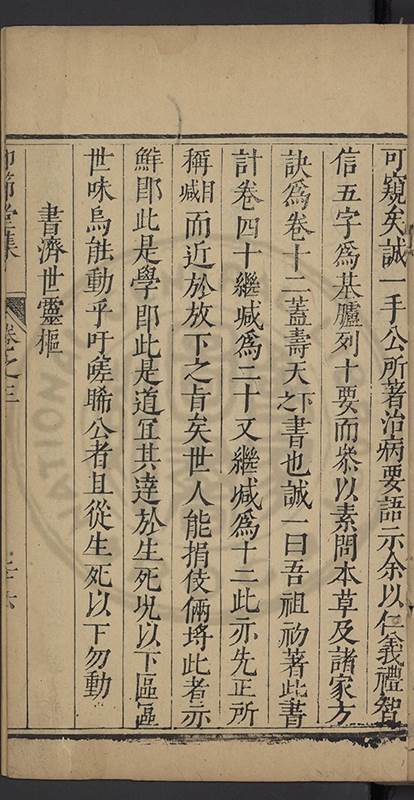 可窺矣誠一手公所著治病要語示余以仁義禮智
信五字爲基臚列十要而叅以素問本草及諸家方
訣爲卷十二蓋壽天下之書也誠一曰吾祖初著此書
計卷四十繼减爲二十又繼减爲十二此亦先正所
稱日减而近於放下之旨矣世人能捐伎倆將此者示
鮮卽此是學卽此是道宜其達於生死況以下區區
世味烏能動乎吁嗟睎公者且從生死以下勿動
書濟世靈樞
節堂集
卷之三